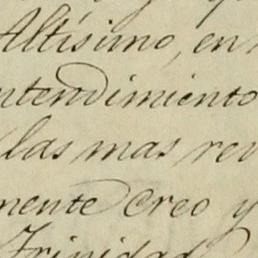 Altísimo, en
ntendimiento
las mas rev
mente Creo y
Trinidad